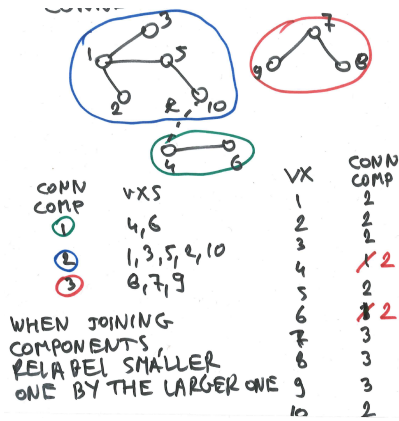 3
7
1
5
9
8
2
R, 10
4
6
CONN
COMP
VXS
1
4,6
2
1,3,5,2,10
3
8,7,9
WHEN JOINING
COMPONENTS,
RELABEL SMALLER
ONE BY THE LARGER ONE
VX
CONN
COMP
1 2
2 2
3 2
4 1 2
5 2
6 1 2
7 3
8 3
9 3
10 2